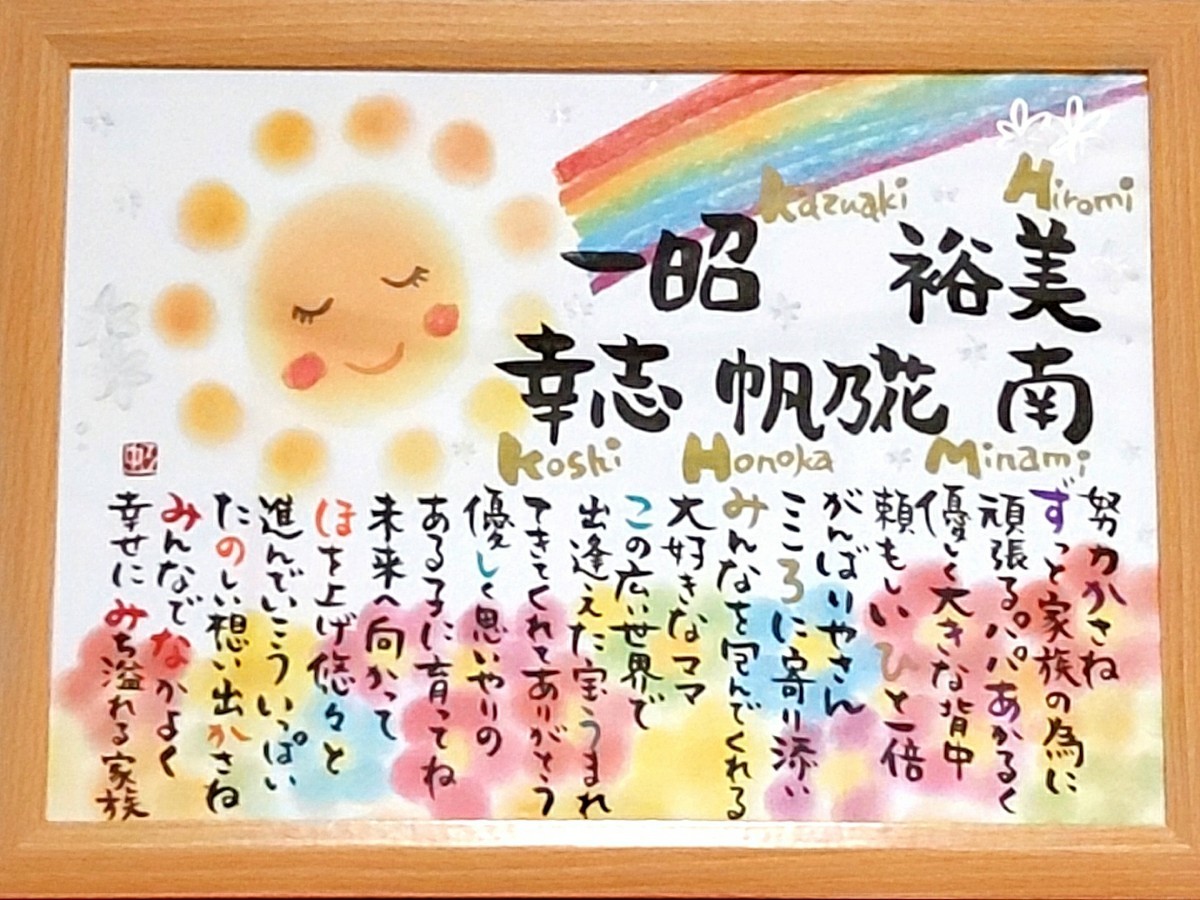 Kazuaki Hiromi
一昭 裕美
幸志 帆乃花 南
Koshi Honoka Minami
努力かさね
ずっと家族の為に
頑張るパパあかるく
優しく大きな背中
頼もしいひと一倍
がんばりやさん
こころに寄り添い
みんなを包んでくれる
大好きなママ
この広い世界で
出逢えた宝うまれ
てきてくれてありがとう
優しく思いやりの
ある子に育ってね
未来へ向かって
ほを上げ悠々と
進んでいこういっぱい
たのしい想い出かさね
みんなでなかよく
幸せにみち溢れる家族